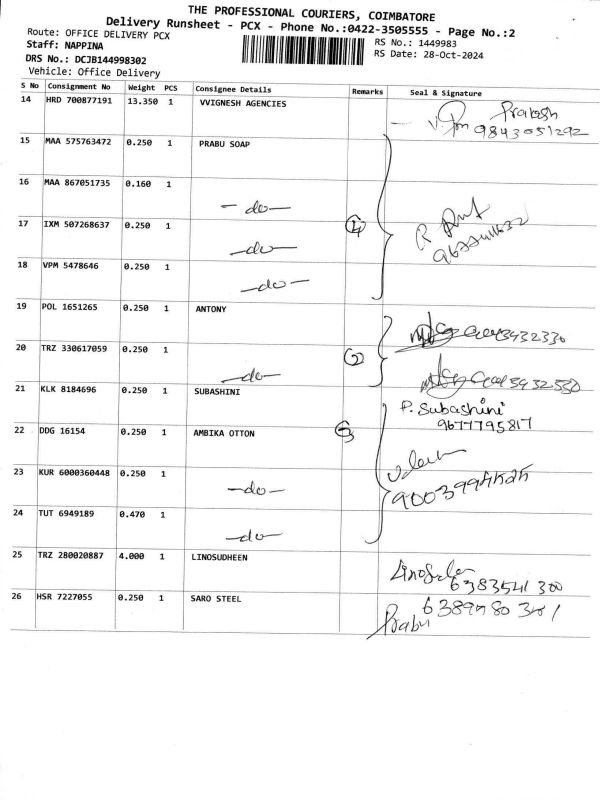 THE PROFESSIONAL COURIERS, COIMBATORE
Delivery Runsheet - PCX - Phone No.:0422-3505555 - Page No.:2
Route: OFFICE DELIVERY PCX
RS No.: 1449983
Staff: NAPPINA
RS Date: 28-Oct-2024
DRS No.: DCJB144998302
Vehicle: Office Delivery
S No Consignment No Weight PCS Consignee Details Remarks Seal & Signature
14 HRD 700877191 13.350 1 VVIGNESH AGENCIES
Prakash
9843051292
15 MAA 575763472 0.250 1 PRABU SOAP
16 MAA 867051735 0.160 1
-do-
17 IXM 507268637 0.250 1 4
-do-
18 VPM 5478646 0.250 1
-do-
19 POL 1651265 0.250 1 ANTONY
20 TRZ 330617059 0.250 1 2
-do-
21 KLK 8184696 0.250 1 SUBASHINI
P. Subashini
9677795817
22 DDG 16154 0.250 1 AMBIKA OTTON
23 KUR 6000360448 0.250 1
-do-
24 TUT 6949189 0.470 1
-do-
25 TRZ 280020887 4.000 1 LINOSUDHEEN
6383541300
26 HSR 7227055 0.250 1 SARO STEEL
Prabu